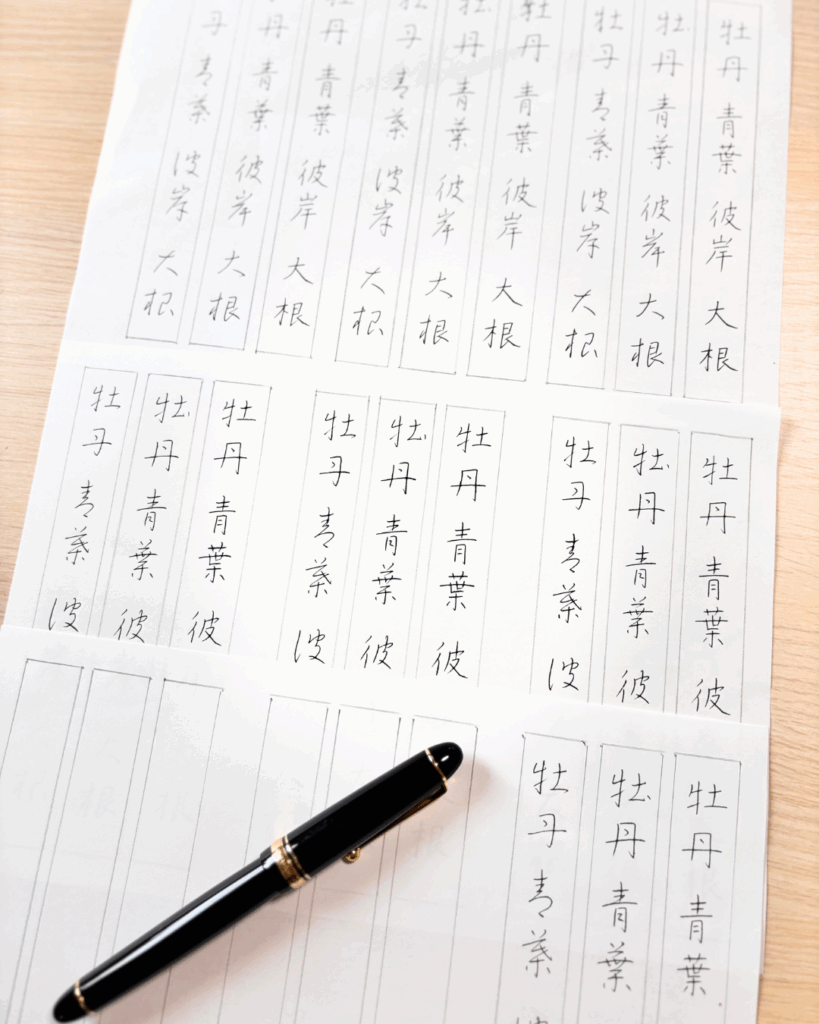 牡丹 青葉 彼岸 大根
牡丹 青葉 彼岸 大根
牡丹 青葉 彼岸 大根
牡丹 青葉 彼岸 大根
牡丹 青葉 彼岸 大根
丹 青葉 彼岸 大根
丹 青葉 彼岸 大根
丹 青葉 彼岸 大根
丹 青葉 彼岸 大根
牡丹 青葉 彼
牡丹 青葉 彼
牡丹 青葉 彼
牡丹 青葉 彼
牡丹 青葉 彼
牡丹 青葉 彼
牡丹 青葉 彼
牡丹 青葉 彼
牡丹 青葉 彼
牡丹 青葉
牡丹 青葉
牡丹 青葉